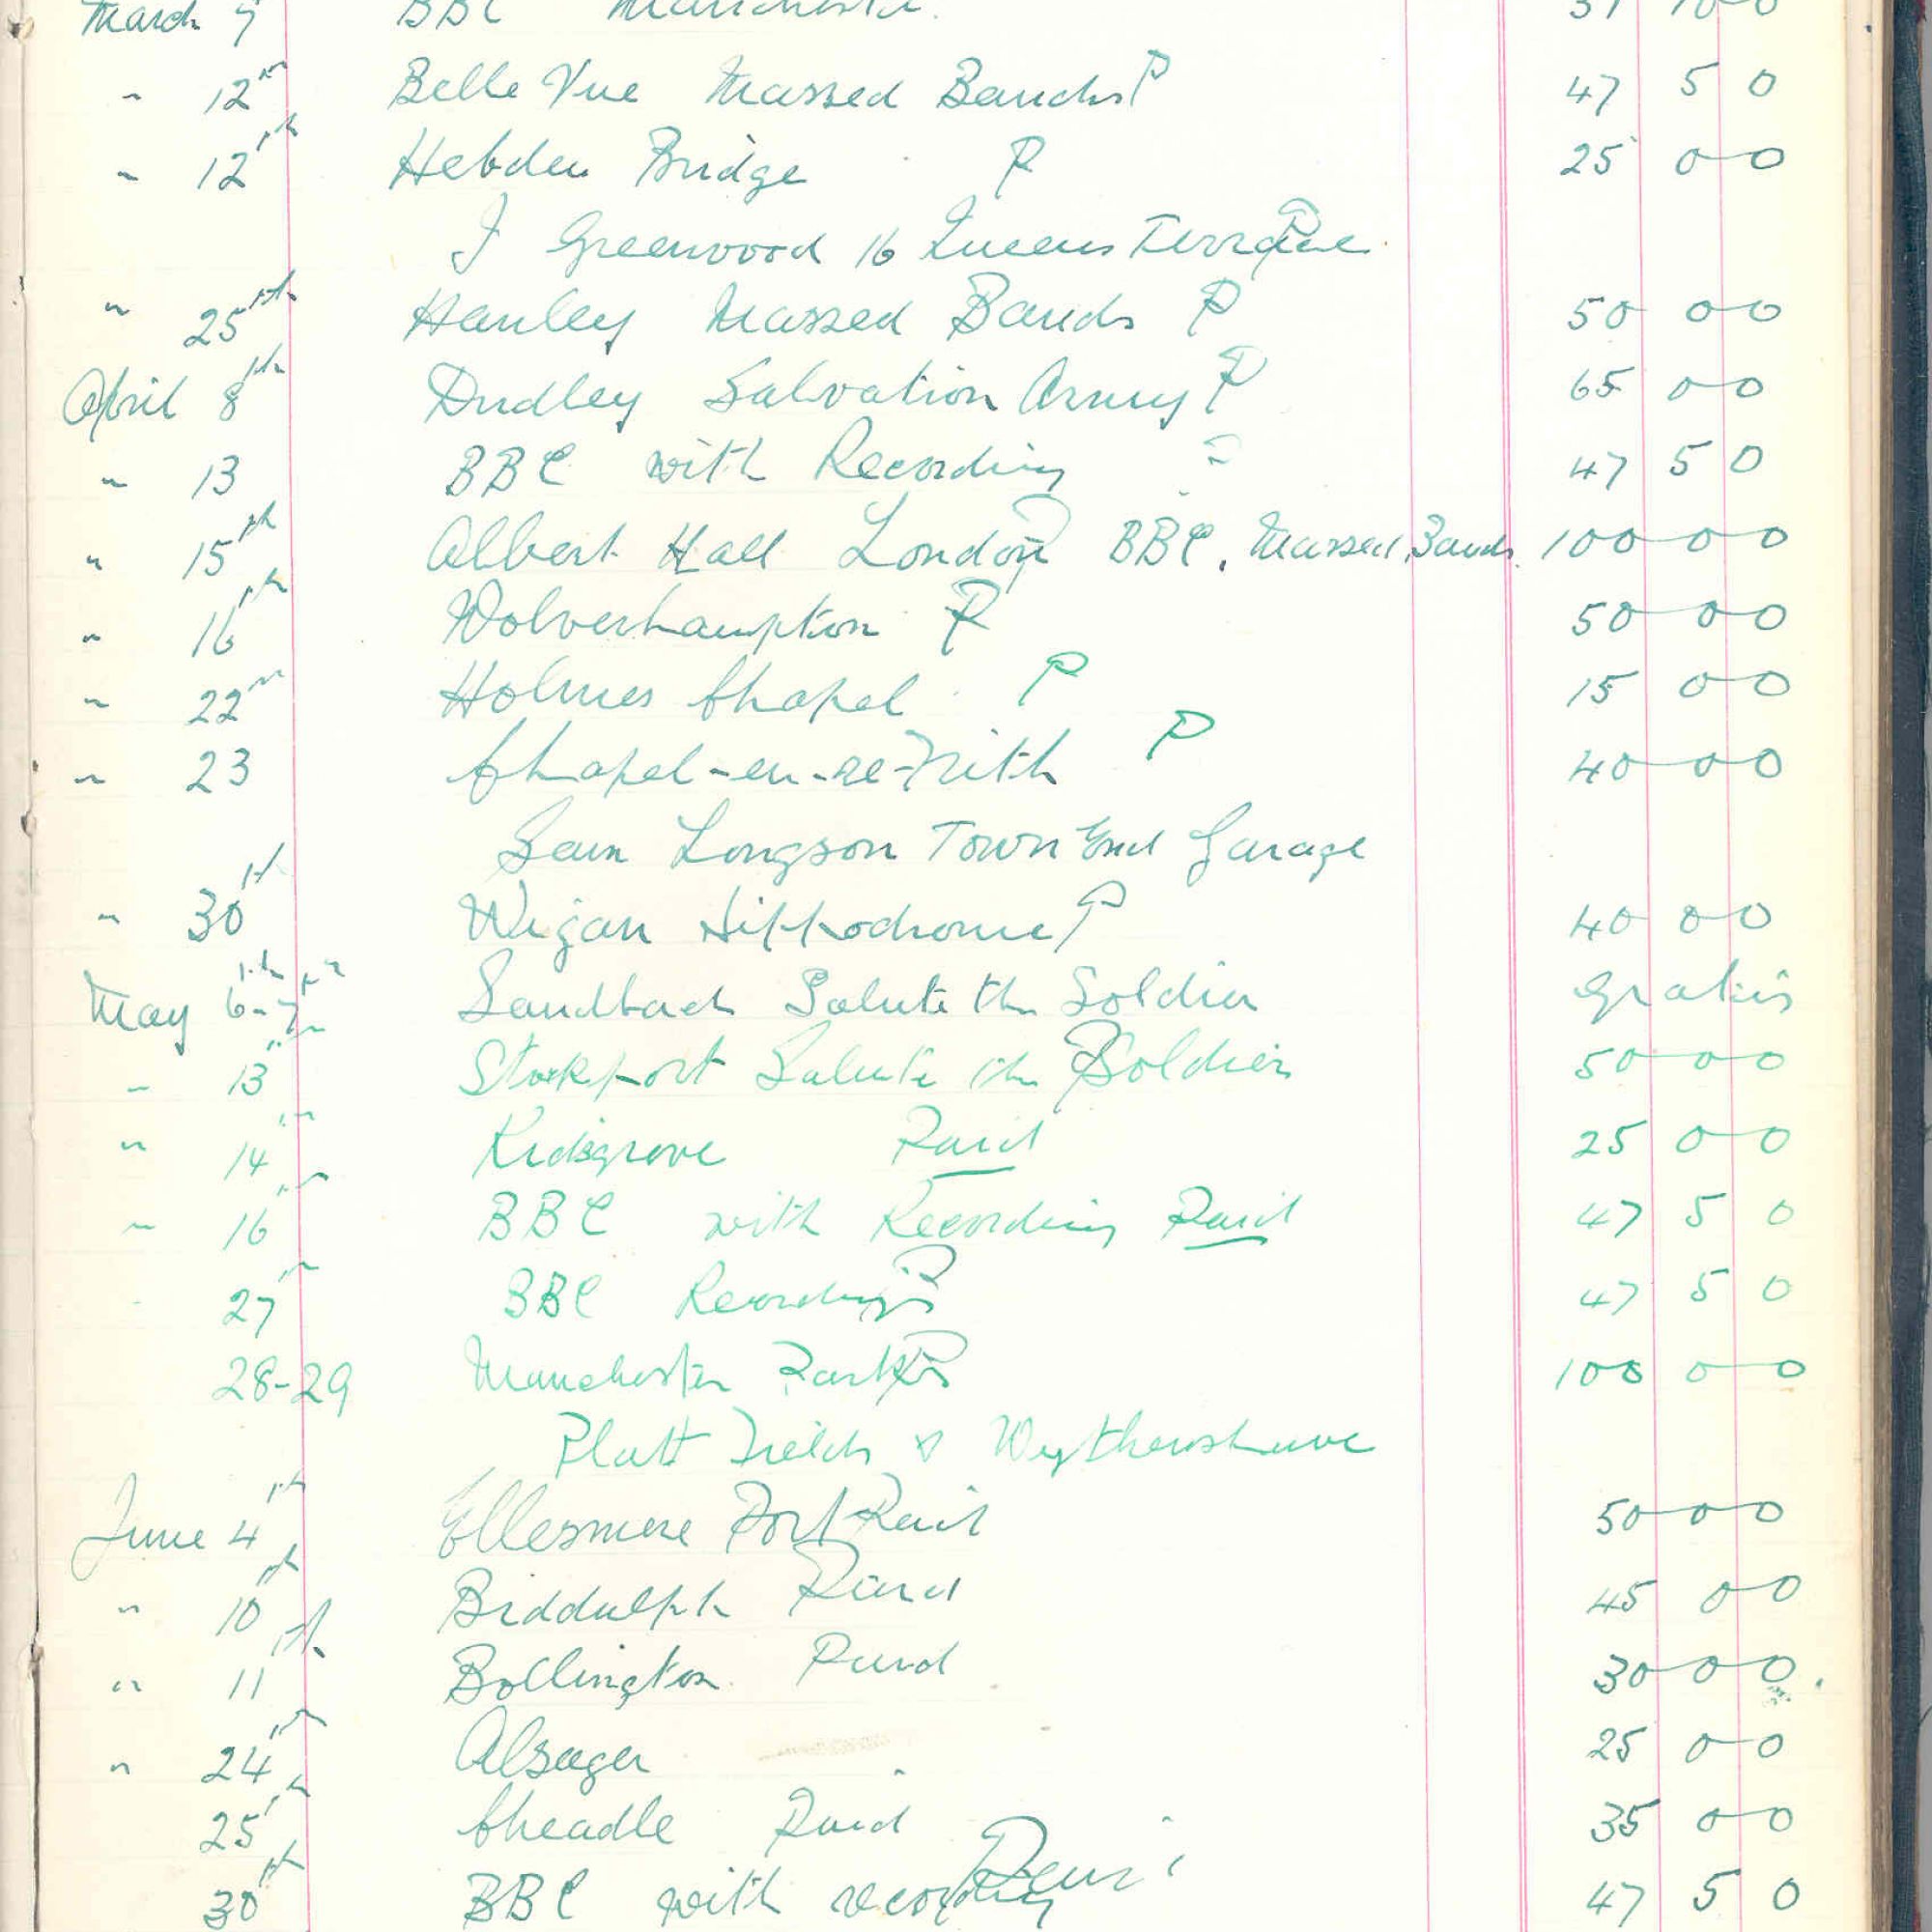 March 5 BBC Manchester. 37 10 0
" 12th Belle Vue Massed Bands P 47 5 0
" 12th Hebden Bridge P 25 0 0
J Greenwood 16 Queens Terrace.
" 25th Hanley Massed Bands P 50 0 0
April 8th Dudley Salvation Army P 65 0 0
" 13 BBC with Recording 47 5 0
" 15th Albert Hall London P BBC. Massed Bands. 100 0 0
" 16th Wolverhampton P 50 0 0
" 22nd Holmes Chapel P 15 0 0
" 23 Chapel-en-le-Frith P 40 0 0
Sam Longson Town End Garage
" 30th Wigan Hippodrome P 40 0 0
May 6th-7th Sandbach Salute the Soldier Gratis
" 13th Stockport Salute the Soldier P 50 0 0
" 14th Kidsgrove Paid 25 0 0
" 16th BBC with Recording Paid 47 5 0
27th BBC Recording P 47 5 0
28-29 Manchester Parks P 100 0 0
Platt Fields & Wythenshawe
June 4th Ellesmere Port Paid 50 0 0
" 10th Biddulph Paid 45 0 0
" 11th Bollington Paid 30 0 0.
" 24th Alsager 25 0 0
25th Cheadle Paid 35 0 0
30th BBC with recording Paid 47 5 0